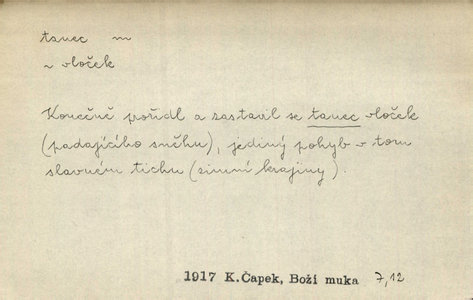 tanec m
~ vloček
Konečně pořídl a zastavil se tanec vloček
(padajícího sněhu), jediný pohyb v tom
slavném tichu (zimní krajiny).
1917 K.Čapek, Boží muka 7,12